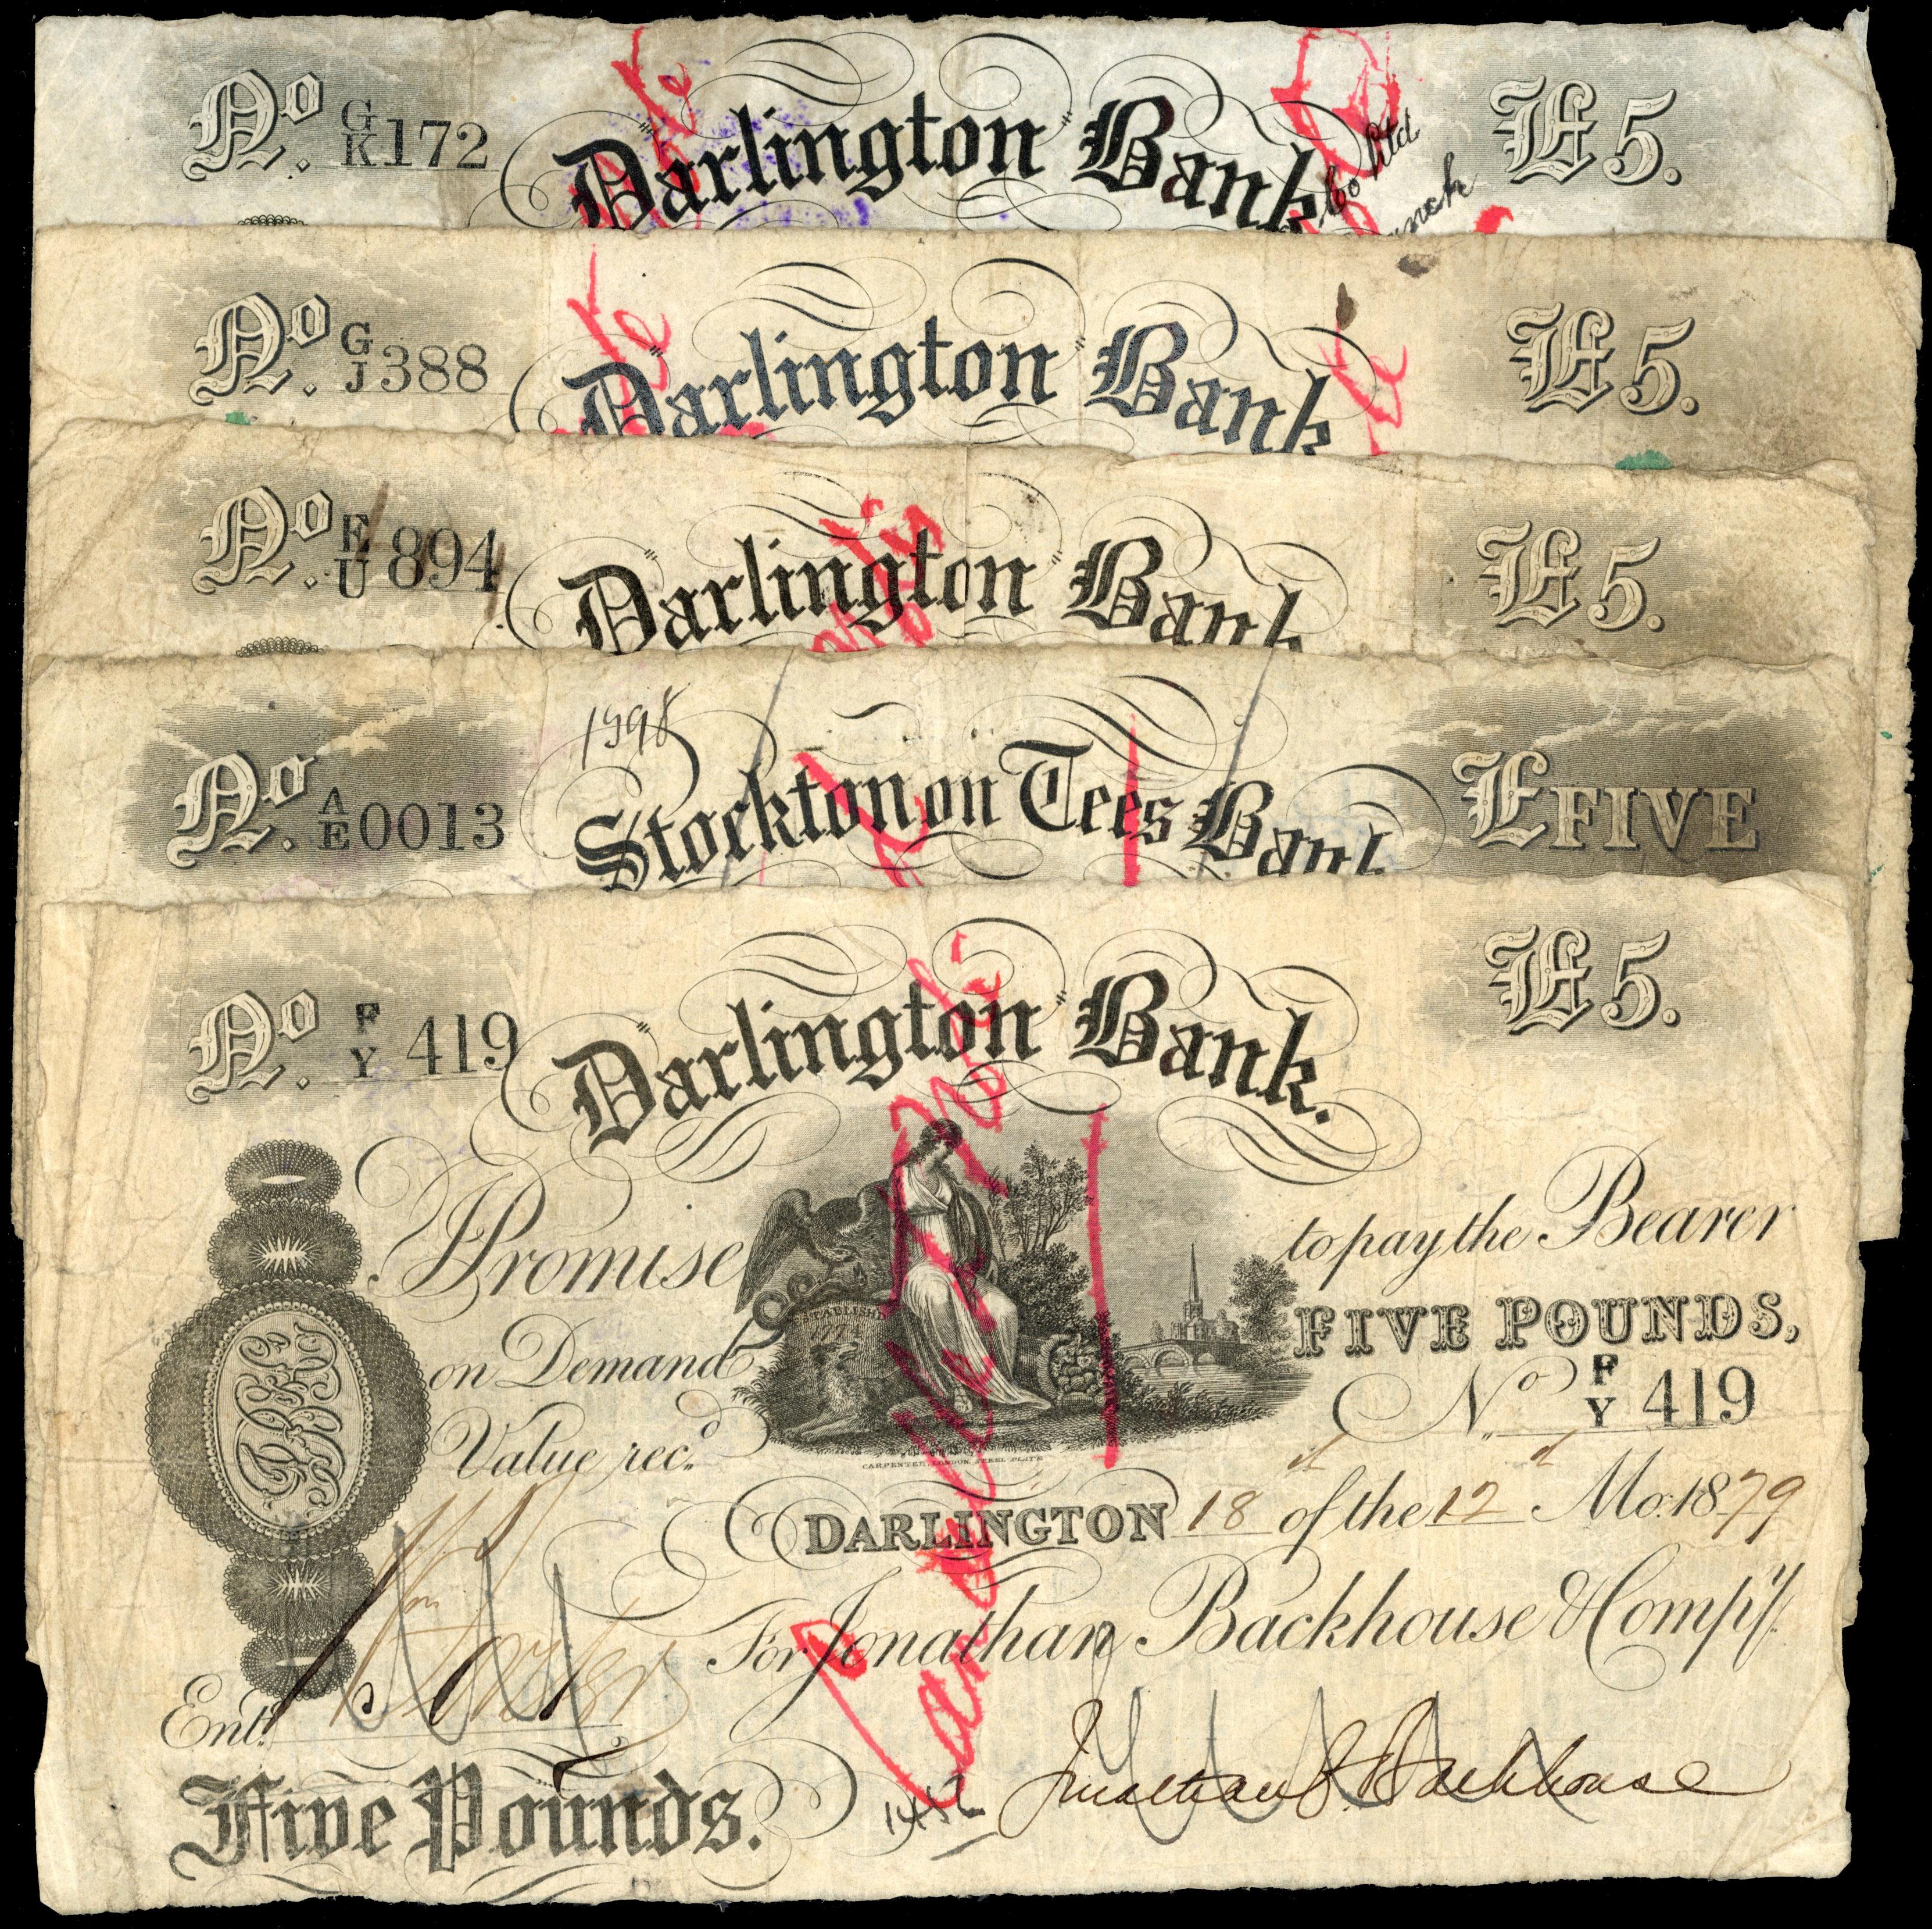 No. G/K 172 Darlington Bank £5.
Co Ltd
No. G/J 388 Darlington Bank £5.
No. F/U 894 Darlington Bank £5.
1998
No. A/E 0013 Stockton on Tees Bank £FIVE
No. F/Y 419 Darlington Bank. £5.
I Promise to pay the Bearer
on Demand FIVE POUNDS,
ESTABLISHED
1774
No F/Y 419
Value rec.d
CARPENTER, LONDON. STEEL PLATE
DARLINGTON 18th of the 12th Mo. 1879
For Jonathan Backhouse & Compy.
Entd.
Jonathan E. Backhouse
Five Pounds.
1452
Cancelled